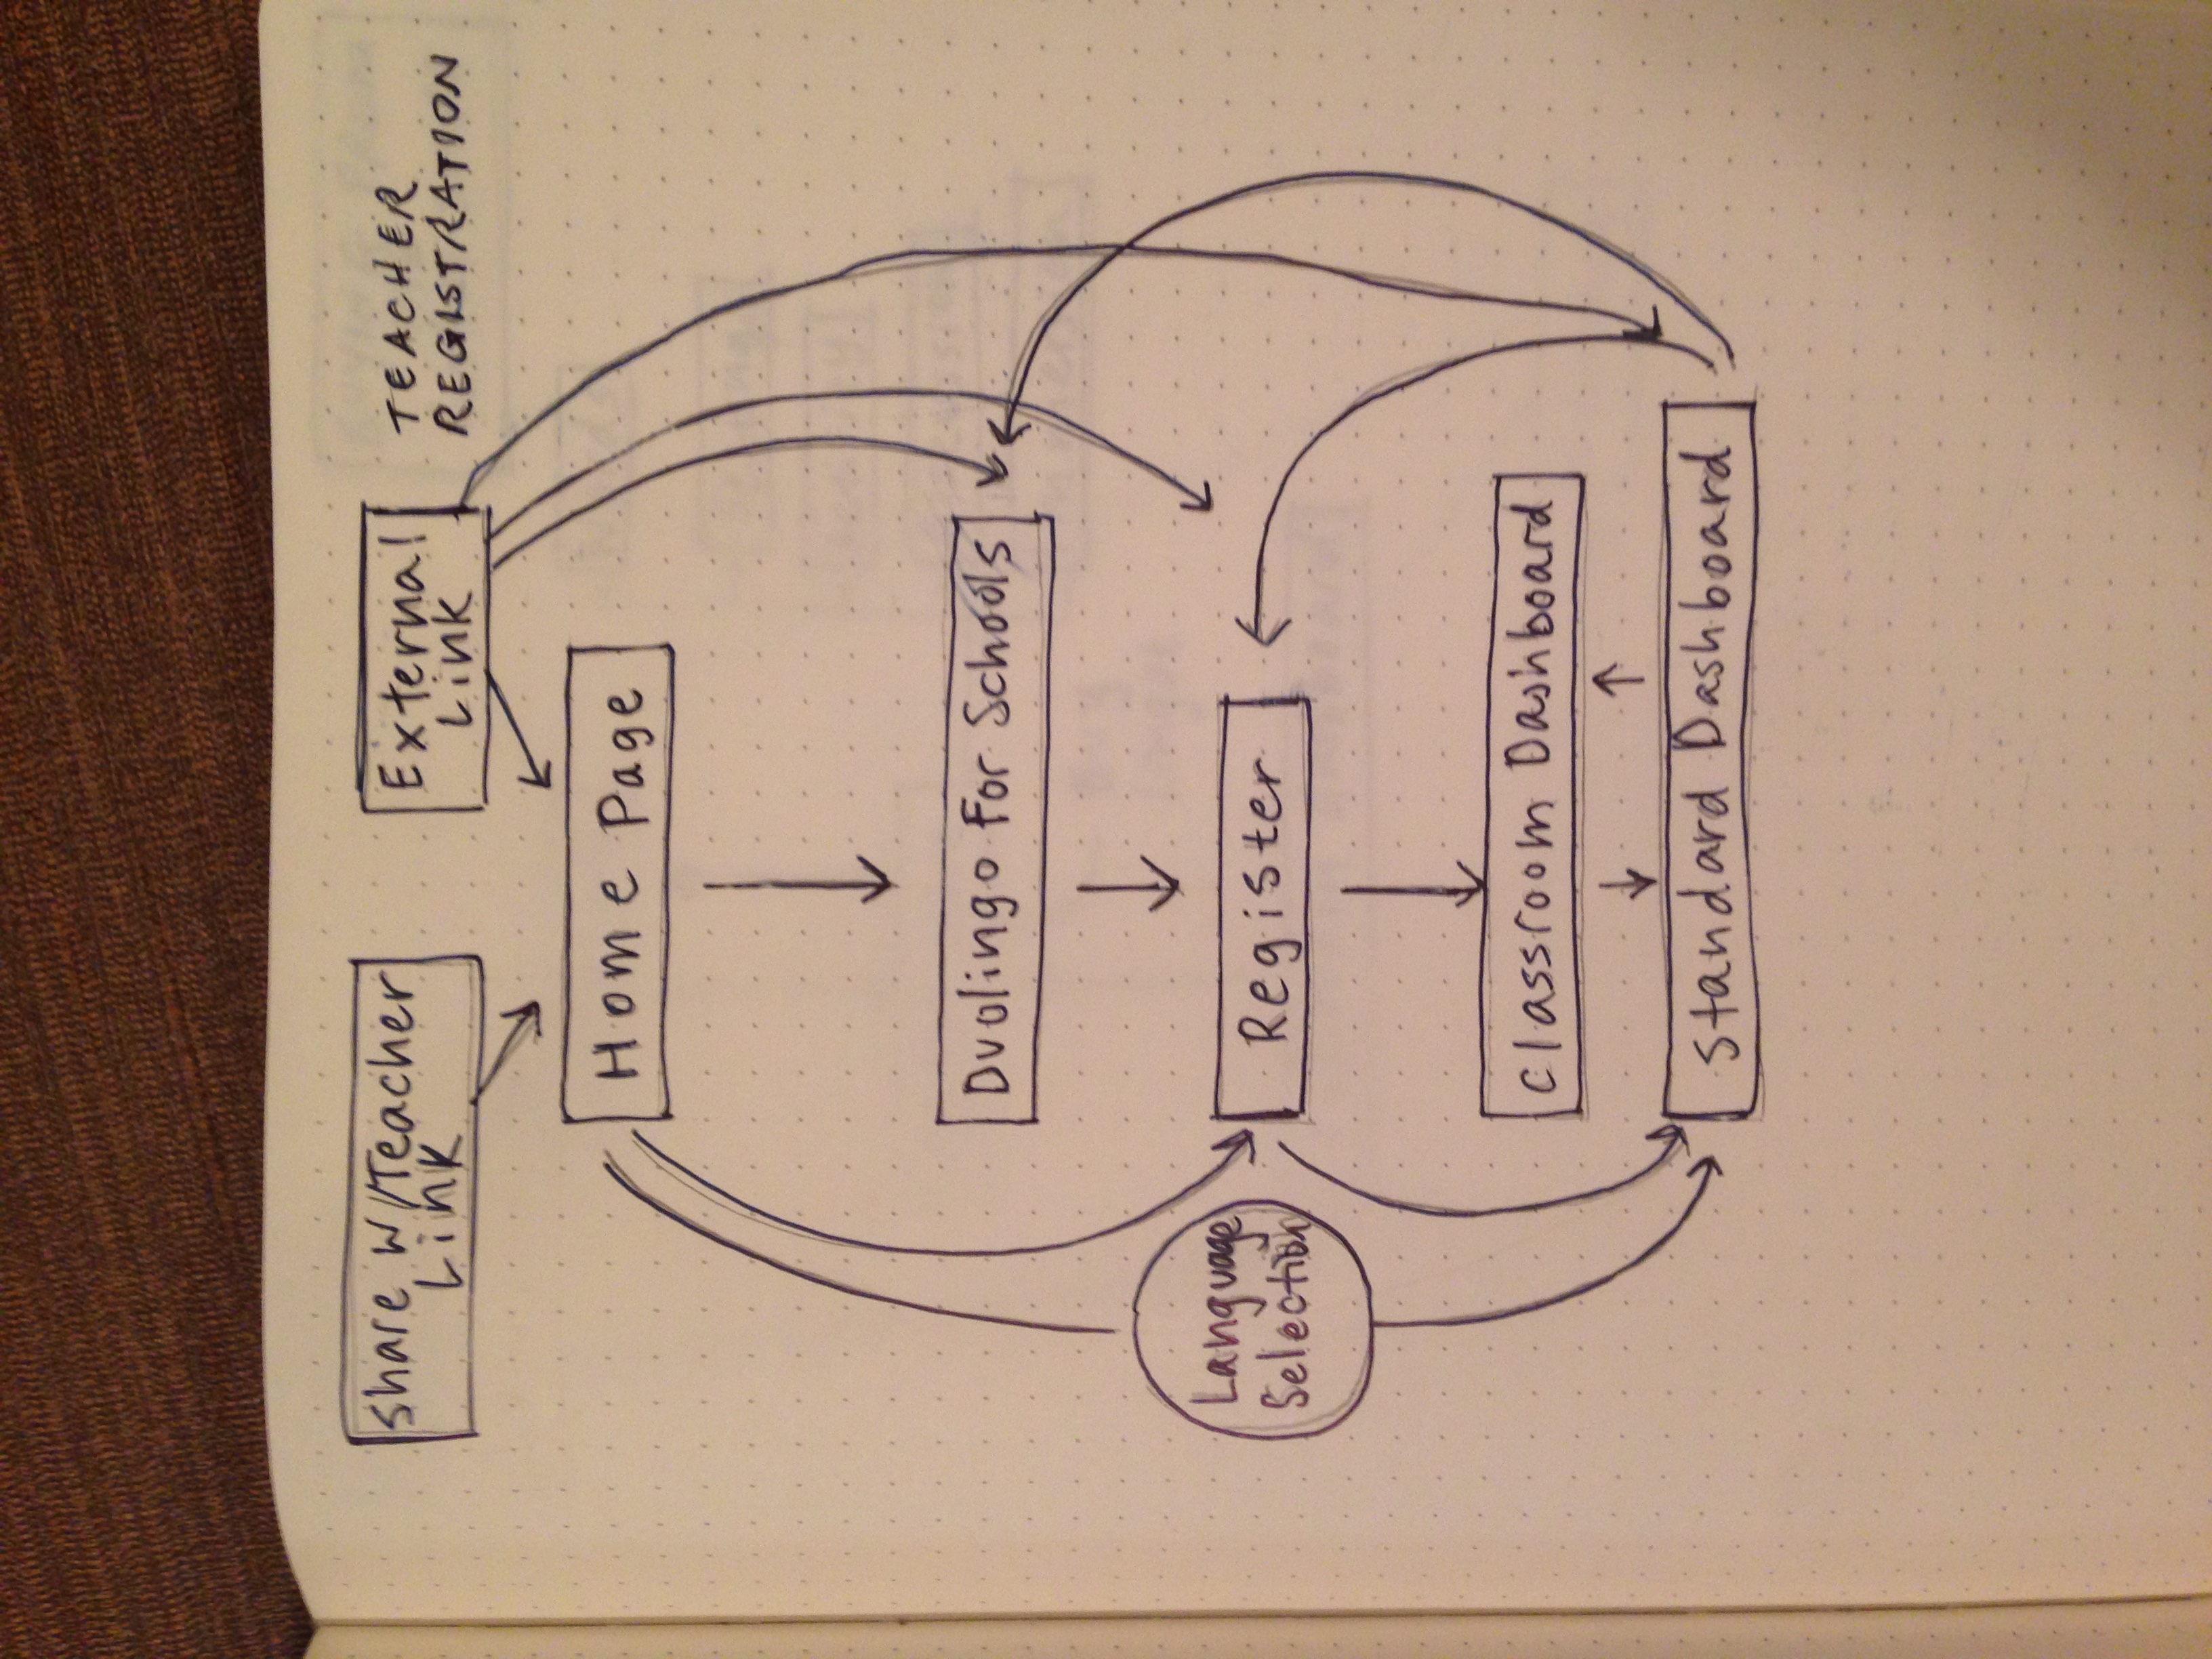 Share w/Teacher
Link
External
Link
TEACHER
REGISTRATION
Home Page
Duolingo For Schools
Language
Selection
Register
Classroom Dashboard
Standard Dashboard